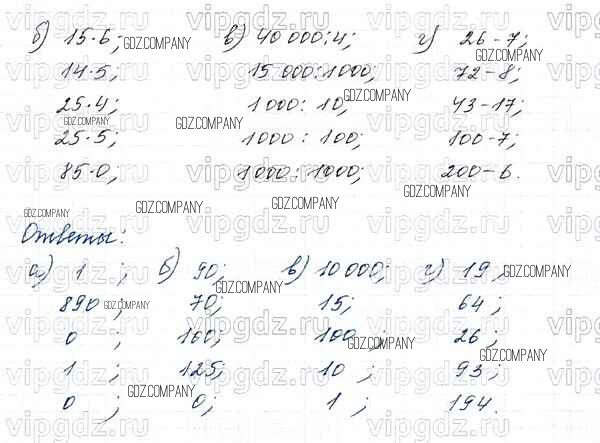 б) 15·6; в) 40 000:4; г) 26-7;
14·5; 15 000:1000; 72-8;
25·4; 1000:10; 43-17;
25·5; 1000:100; 100-7;
85·0; 1000:1000; 200-6.
Ответы:
а) 1; б) 90; в) 10 000; г) 19;
890; 70; 15; 64;
0; 100; 100; 26;
1; 125; 10; 93;
0; 0; 1; 194.
vipgdz.ru
GDZ.COMPANY